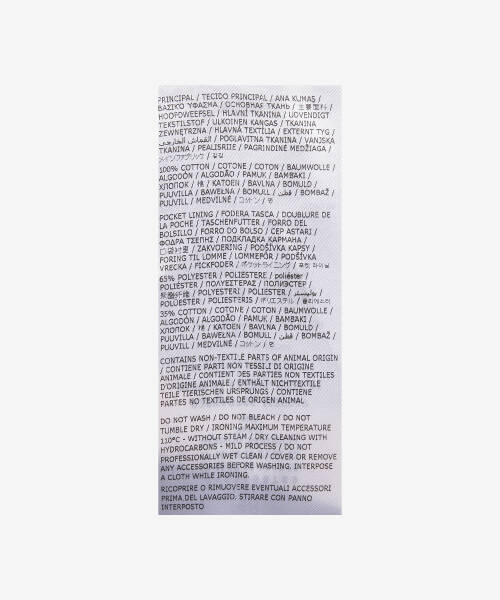 PRINCIPAL / TECIDO PRINCIPAL / ANA KUMAŞ /
ΒΑΣΙΚΟ ΥΦΑΣΜΑ / ОСНОВНАЯ ТКАНЬ / 主要面料 /
HOOFDWEEFSEL / HLAVNÍ TKANINA / UDVENDIGT
TEKSTILSTOF / ULKOINEN KANGAS / TKANINA
ZEWNĘTRZNA / HLAVNÁ TEXTÍLIA / EXTERNT TYG /
القماش الخارجي / POGLAVITNA TKANINA / VANJSKA
TKANINA / PEALISRIIE / PAGRINDINĖ MEDŽIAGA /
メインファブリック / 겉감
100% COTTON / COTONE / COTON / BAUMWOLLE /
ALGODÓN / ALGODÃO / PAMUK / ΒΑΜΒΑΚΙ /
ХЛОПОК / 棉 / KATOEN / BAVLNA / BOMULD /
PUUVILLA / BAWEŁNA / BOMULL / قطن / BOMBAŽ /
PUUVILL / MEDVILNĖ / コットン / 면
POCKET LINING / FODERA TASCA / DOUBLURE DE
LA POCHE / TASCHENFUTTER / FORRO DEL
BOLSILLO / FORRO DO BOLSO / CEP ASTARI /
ΦΟΔΡΑ ΤΣΕΠΗΣ / ПОДКЛАДКА КАРМАНА /
口袋衬里 / ZAKVOERING / PODŠÍVKA KAPSY /
FORING TIL LOMME / LOMMEFÓR / PODŠÍVKA
VRECKA / FICKFODER / ポケットライニング / 포켓 라이닝
65% POLYESTER / POLIESTERE / poliéster /
POLIÉSTER / ΠΟΛΥΕΣΤΕΡΑΣ / ПОЛИЭСТЕР /
聚酯纤维 / POLYESTER / POLYESTERI / POLIESTER /
POLYESTERI / POLYESTER / بوليستر /
POLÜESTER / POLIESTERIS / ポリエステル / 폴리에스터
35% COTTON / COTONE / COTON / BAUMWOLLE /
ALGODÓN / ALGODÃO / PAMUK / ΒΑΜΒΑΚΙ /
ХЛОПОК / 棉 / KATOEN / BAVLNA / BOMULD /
PUUVILLA / BAWEŁNA / BOMULL / قطن / BOMBAŽ /
PUUVILL / MEDVILNĖ / コットン / 면
CONTAINS NON-TEXTILE PARTS OF ANIMAL ORIGIN
/ CONTIENE PARTI NON TESSILI DI ORIGINE
ANIMALE / CONTIENT DES PARTIES NON TEXTILES
D'ORIGINE ANIMALE / ENTHÄLT NICHTTEXTILE
TEILE TIERISCHEN URSPRUNGS / CONTIENE
PARTES NO TEXTILES DE ORIGEN ANIMAL
DO NOT WASH / DO NOT BLEACH / DO NOT
TUMBLE DRY / IRONING MAXIMUM TEMPERATURE
110°C - WITHOUT STEAM / DRY CLEANING WITH
HYDROCARBONS - MILD PROCESS / DO NOT
PROFESSIONALLY WET CLEAN / COVER OR REMOVE
ANY ACCESSORIES BEFORE WASHING. INTERPOSE
A CLOTH WHILE IRONING.
RICOPRIRE O RIMUOVERE EVENTUALI ACCESSORI
PRIMA DEL LAVAGGIO. STIRARE CON PANNO
INTERPOSTO